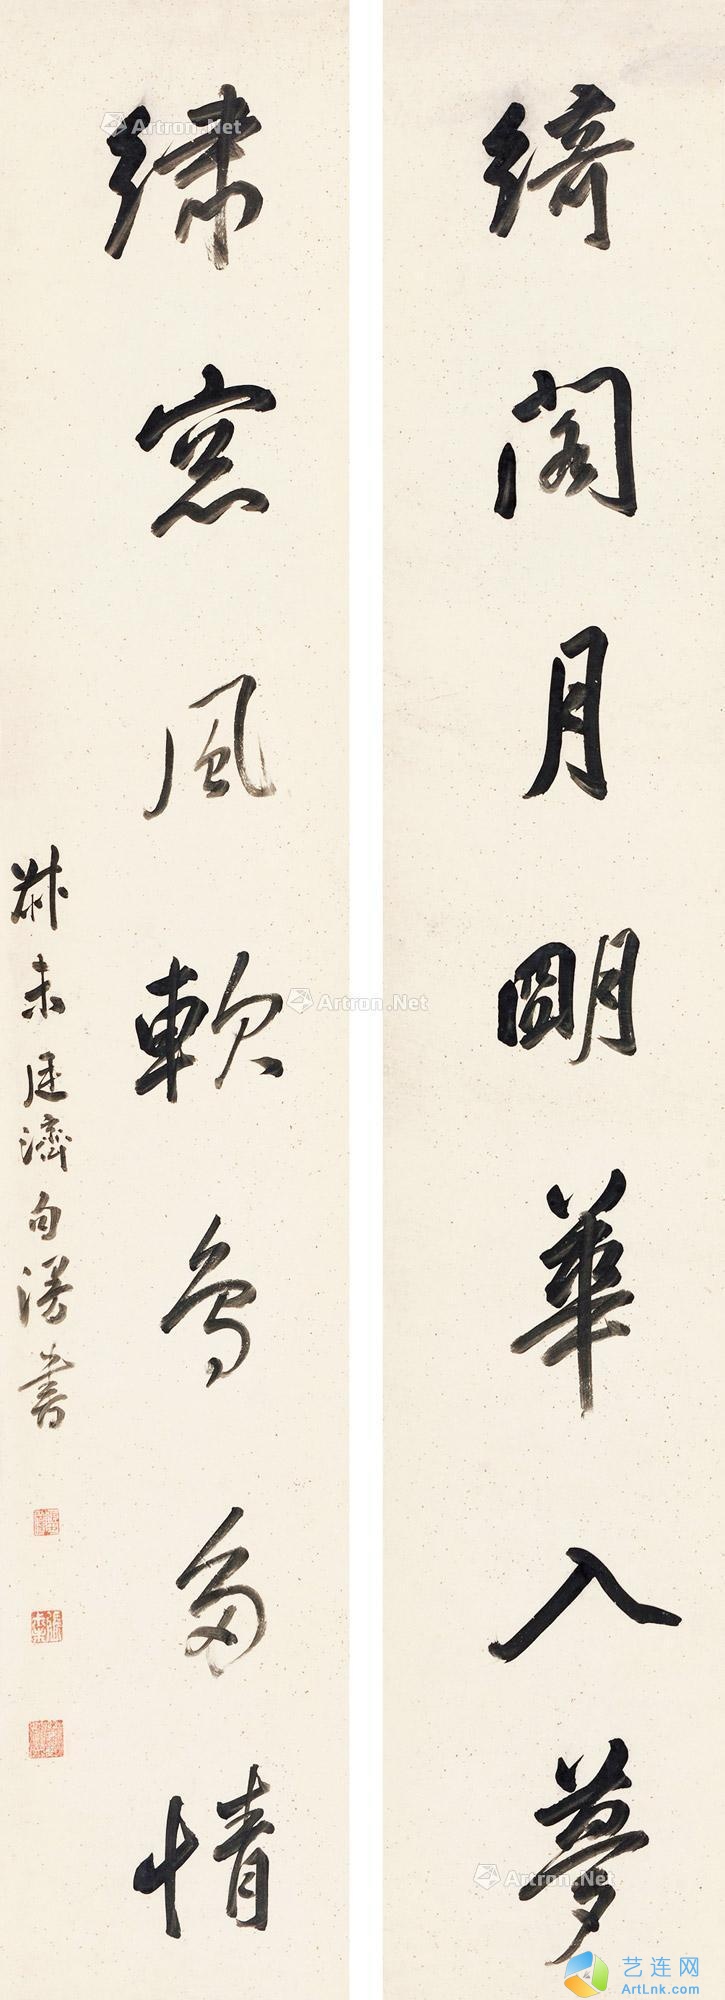 綺閣月朙華入夢
繡窓風軟鳥多情
叔未廷濟句漫書
張叔未
Artron.Net
Artron.Net
Artron.Net
艺连网
ArtLnk.com